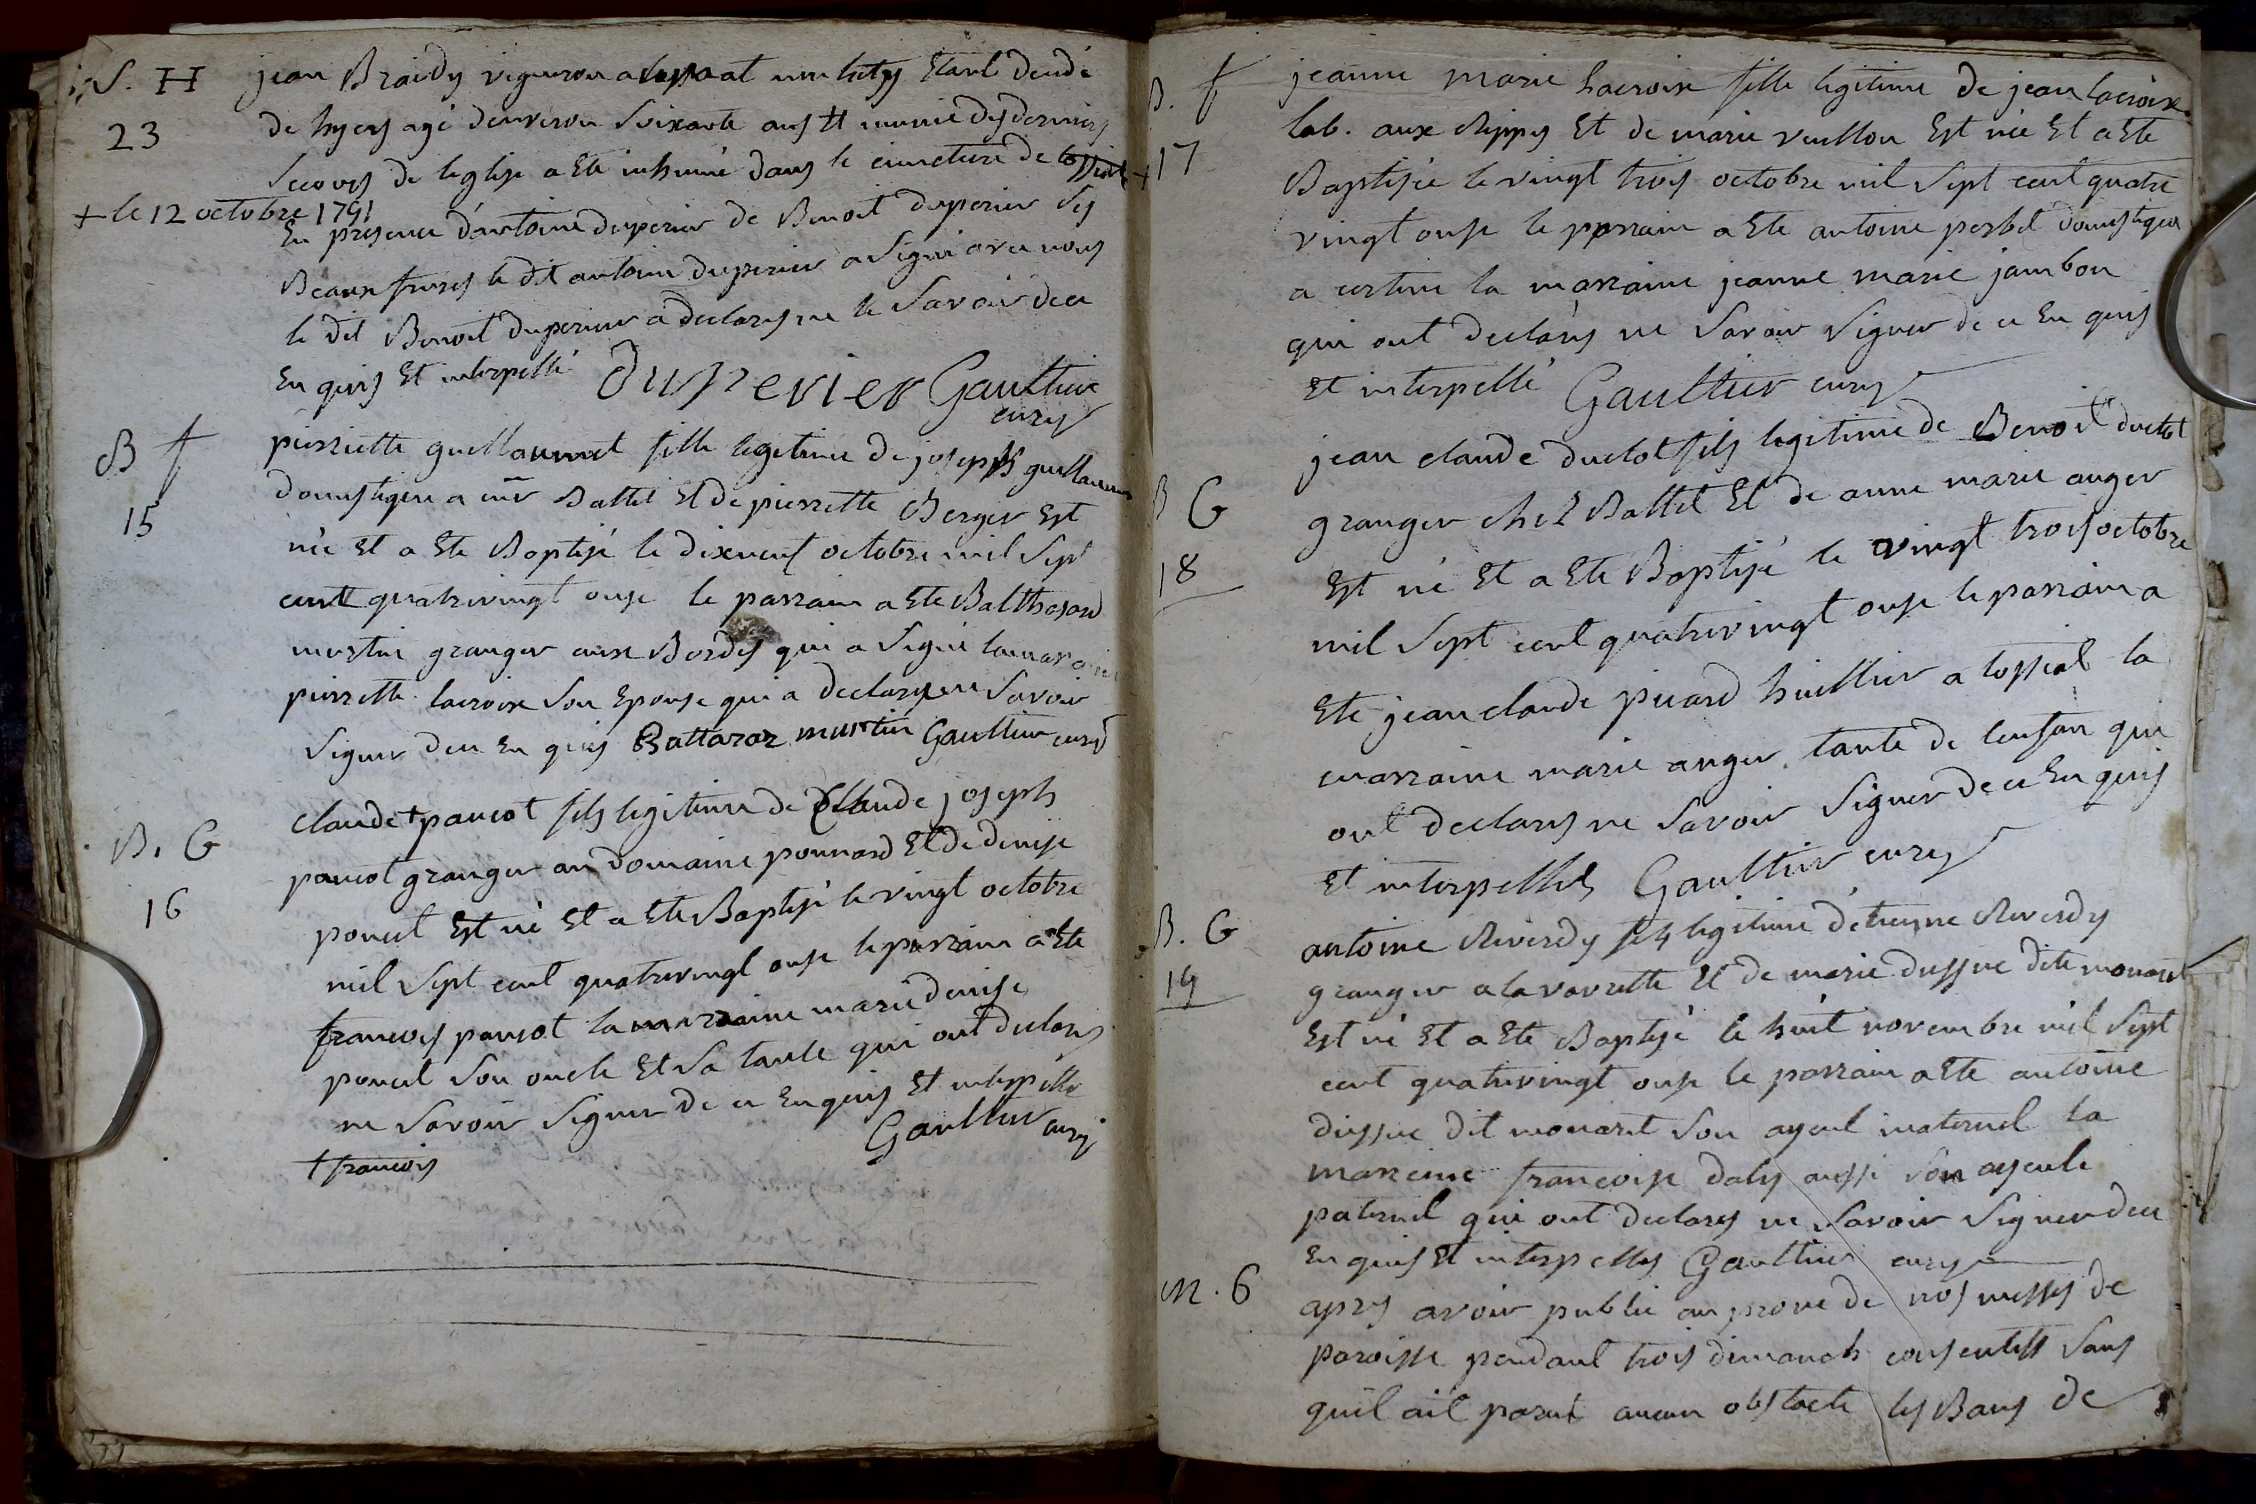 S. H
23
+ le 12 octobre 1791
jean Braidy vigneron a étant décédé
de hyers agé denviron Soixante ans # munie des derniers
Secours de leglise a Eté inhumé dans le cimetiere de
En presence dantoine duperier de Benoit duperier Ses
Beaux freres le dit antoine duperier a Signé avec nous
le dit Benoit duperier a declarés ne le Savoir de ce
En quis Et interpellé duperier Gaultier
curé
B f
15
pierrette guillaumet fille legitime de joseph guillaumet
domestique a mr Battet Et de pierrette Berger Est
née Et a Ete Baptisé le dixneuf octobre mil Sept
cent quatrevingt onze le parrain a Ete Balthasard
martin granger aux Bordes qui a Signé la maraine
pierrette lacroix Son Epouse qui a declarés ne Savoir
Signer de ce En quis Battazar martin Gaultier curé
B. G
16
claude + pancot fils legitime de Claude joseph
pancot granger au domaine ponnard Et de denise
poncet Est né Et a Ete Baptisé le vingt octobre
mil Sept cent quatrevingt onze le parrain a Ete
francois pancot la marraine marie denise
poncet Son oncle Et Sa tante qui ont declarés
ne Savoir Signer de ce En quis Et interpellé
Gaultier curé
+ francois
B. f
+ 17
jeanne marie Lacroix fille legitime de jean lacroix
lab. aux Rippes Et de marie vuillon Est née Et a Ete
Baptisée le vingt trois octobre mil Sept cent quatre
vingt onze le parrain a Ete antoine perbet domestique
a la marraine jeanne marie jambon
qui ont declarés ne Savoir Signer de ce En quis
Et interpellé Gaultier curé
B G
18
jean claude duclot fils legitime de Benoit duclot
granger chez Battet Et de anne marie auger
Est né Et a Ete Baptisé le vingt trois octobre
mil Sept cent quatrevingt onze le parrain a
Ete jean claude picard huillier a lossial la
marraine marie auger tante de lenfan qui
ont declarés ne Savoir Signer de ce En quis
Et interpellés Gaultier curé
B. G
19
antoine Reverdy fils legitime d'etienne Reverdy
granger a la vavrette Et de marie dussuc dite monaret
Est né Et a Ete Baptisé le huit novembre mil Sept
cent quatrevingt onze le parrain a Ete antoine
dussuc dit monaret Son ayeul maternel la
marrine francoise daly aussi Son ayeule
paternel qui ont declarés ne Savoir Signer de ce
En quis Et interpellés Gaultier curé
M. 6
apres avoir publié au prone de nos messes de
paroisse pendant trois dimanch consecutifs Sans
quil ait paru aucun obstacle les Bans de